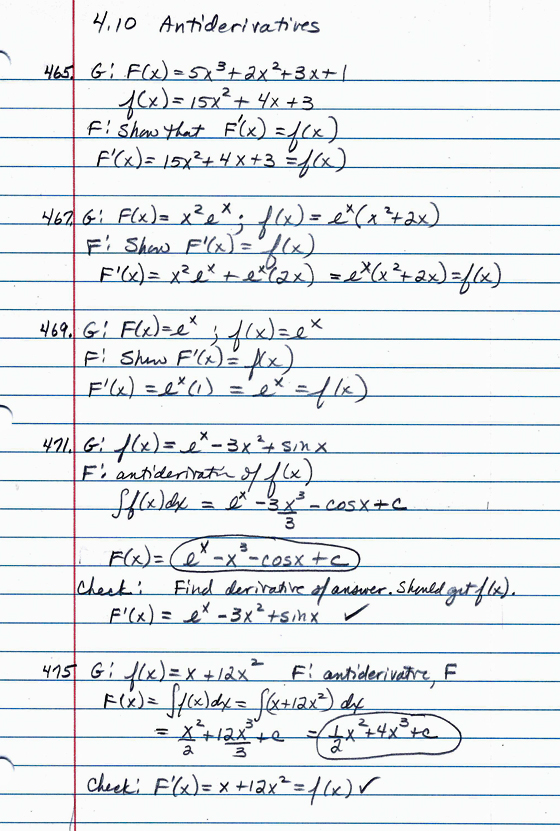 4.10 Antiderivatives
465. G: F(x) = 5x³ + 2x² + 3x + 1
f(x) = 15x² + 4x + 3
F: Show that F'(x) = f(x)
F'(x) = 15x² + 4x + 3 = f(x)
467. G: F(x) = x²eˣ ; f(x) = eˣ(x² + 2x)
F: Show F'(x) = f(x)
F'(x) = x²eˣ + eˣ(2x) = eˣ(x² + 2x) = f(x)
469. G: F(x) = eˣ ; f(x) = eˣ
F: Show F'(x) = f(x)
F'(x) = eˣ(1) = eˣ = f(x)
471. G: f(x) = eˣ - 3x² + sin x
F: antiderivative of f(x)
∫f(x)dx = eˣ - 3x³/3 - cos x + c
F(x) = eˣ - x³ - cos x + c
Check: Find derivative of answer. Should get f(x).
F'(x) = eˣ - 3x² + sin x ✓
475 G: f(x) = x + 12x² F: antiderivative, F
F(x) = ∫f(x)dx = ∫(x + 12x²) dx
= x²/2 + 12x³/3 + c = 1/2 x² + 4x³ + c
Check: F'(x) = x + 12x² = f(x) ✓